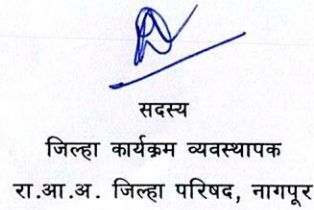 सदस्य
जिल्हा कार्यक्रम व्यवस्थापक
रा.आ.अ. जिल्हा परिषद, नागपूर